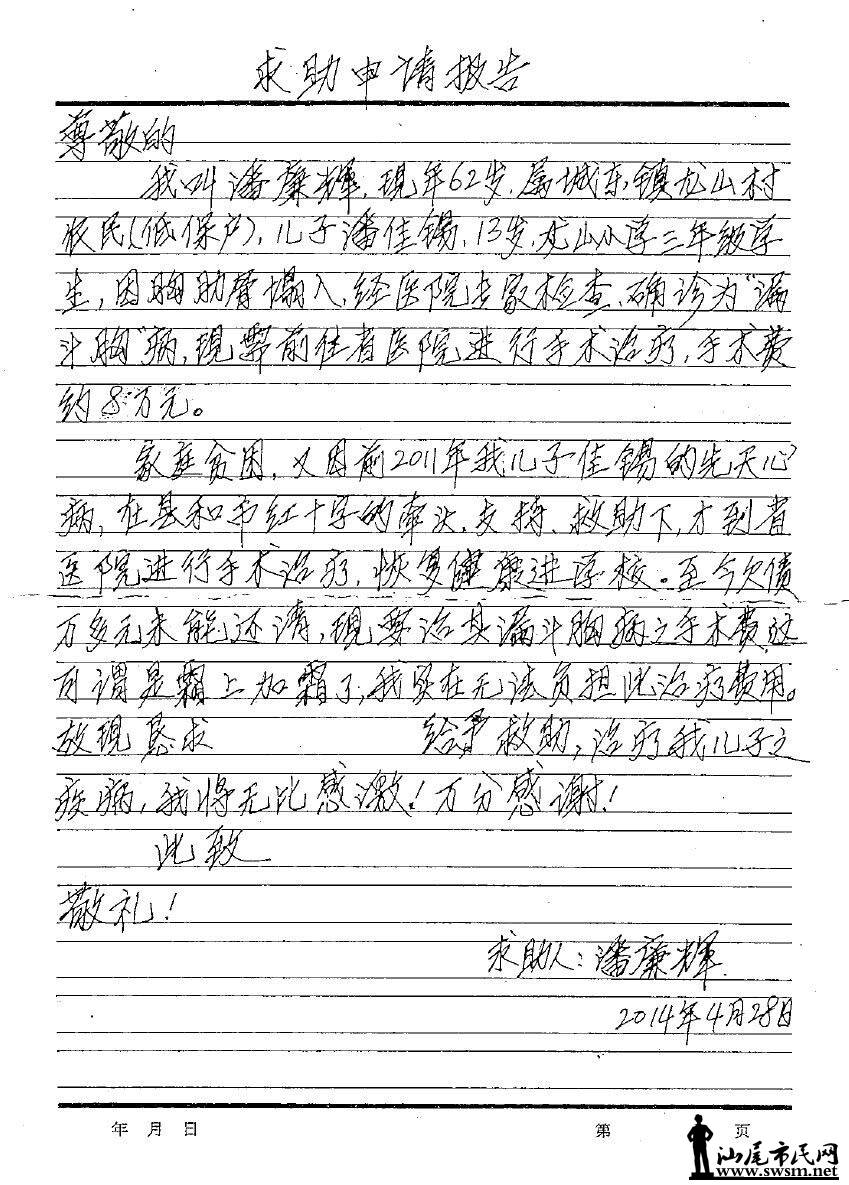 求助申请报告
尊敬的
我叫潘廉輝，现年62岁，属城东镇龙山村
农民(低保户)，儿子潘佳锡，13岁，龙山小学三年级学
生，因胸肋骨塌入，经医院专家检查、确诊为“漏
斗胸”病，现要前往省医院进行手术治疗，手术费
约8万元。
家庭贫困，又因前2011年我儿子佳锡的先天心
病，在县和市红十字的牵头、支持、救助下，才到省
医院进行手术治疗，恢复健康进学校。至今欠债
万多元未能还清，现要治其漏斗胸病之手术费，这
可谓是霜上加霜了，我实在无法负担此治疗费用。
故现恳求 给予救助，治疗我儿子之
疾病，我将无比感激！万分感谢！
此致
敬礼！
求助人：潘廉輝
2014年4月28日
年 月 日 第 页
汕尾市民网
www.swsm.net